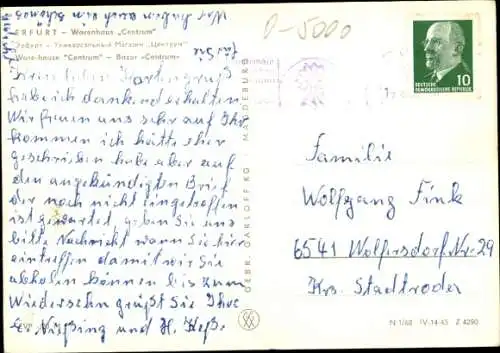 Wir haben auch ein schönes
D-5000
ERFURT – Warenhaus „Centrum“
Эрфурт – Универсальный Магазин „Центрум“
Ware-house “Centrum” – Bazar «Centrum»
für Sie
Ihren lieben Kartengruß
habe ich dankend erhalten
Wir freuen uns sehr auf Ihr
kommen ich hätte eher
geschrieben habe aber auf
den angekündigten Brief
der noch nicht eingetroffen
ist gewartet geben Sie uns
bitte Nachricht wann Sie hier
eintreffen damit wir Sie
abholen können bis zum
Wiedersehn grüßt Sie Ihre
E. Nießing und H. Heße
GEBR. GARLOFF KG · MAGDEBURG
10
DEUTSCHE
DEMOKRATISCHE REPUBLIK
Familie
Wolfgang Fink
6541 Wolfersdorf Nr. 29
Krs. Stadtroda
N 1/68 IV-14-45 Z 4090